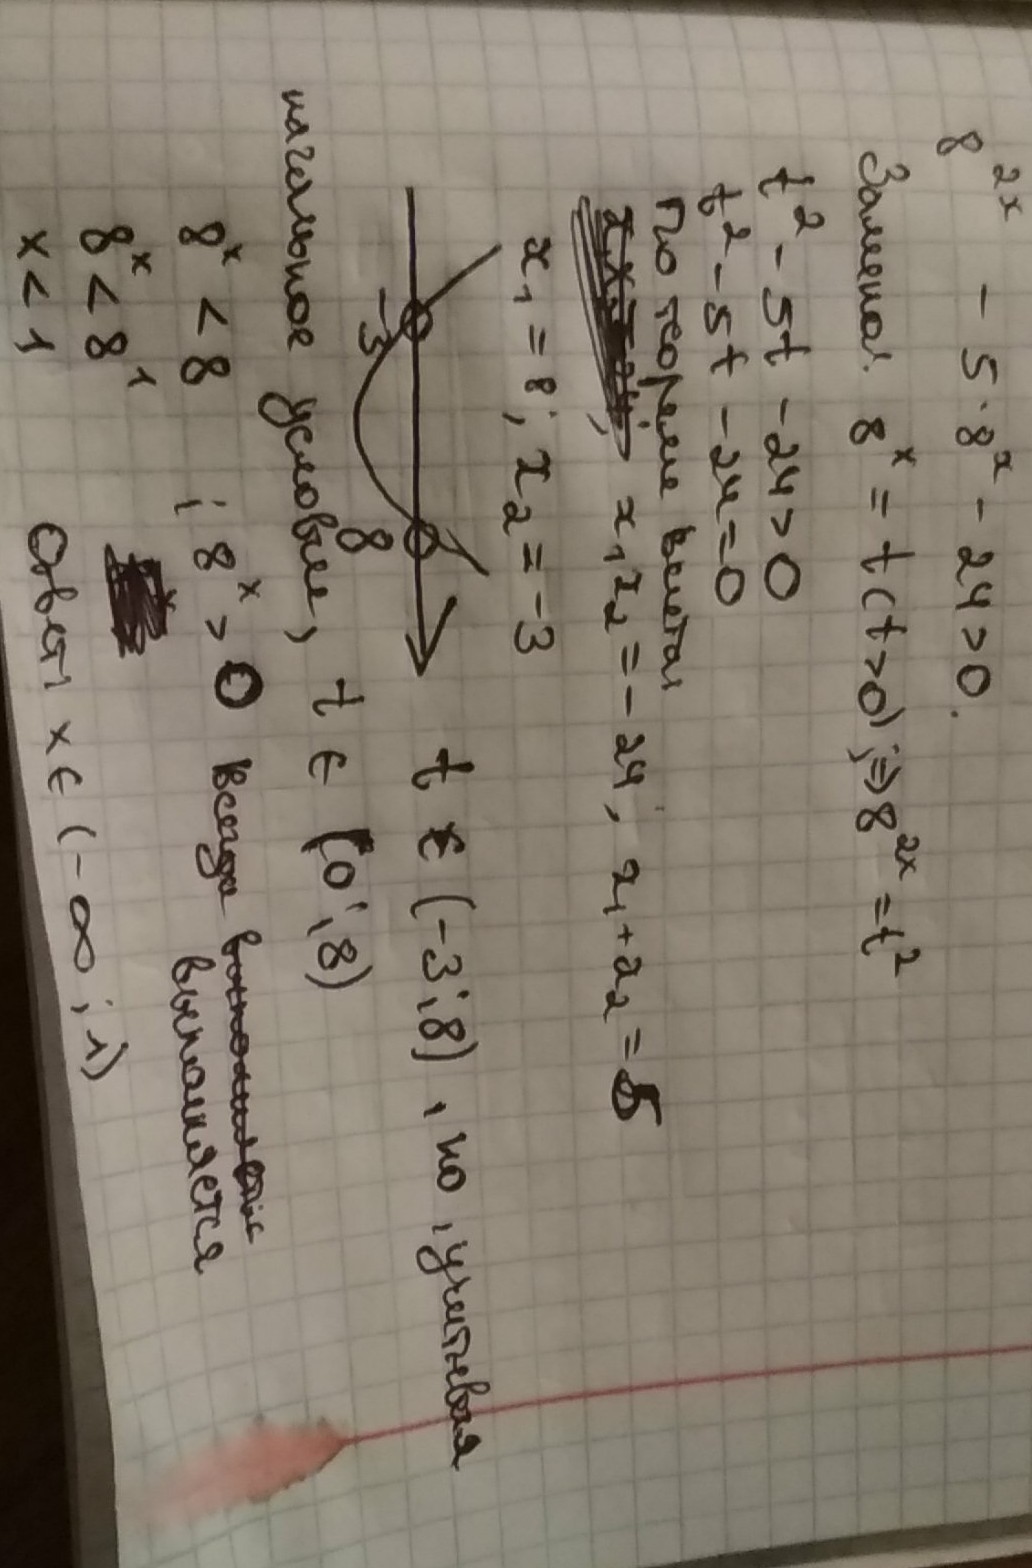 8^2x - 5·8^x - 24>0.
Замена: 8^x = t (t>0); => 8^2x = t^2
t^2 - 5t - 24>0
t^2 - 5t - 24=0
По теореме виета:
x1x2 = -24, x1+x2 = 5
x1 = 8; x2 = -3
-3 8 t ∈ (-3;8), но, учитывая
начальное условие, t ∈ (0;8)
8^x < 8 ; 8^x > 0 всегда
8^x < 8^1 выполняется
x < 1
Ответ: x ∈ (-∞;1)